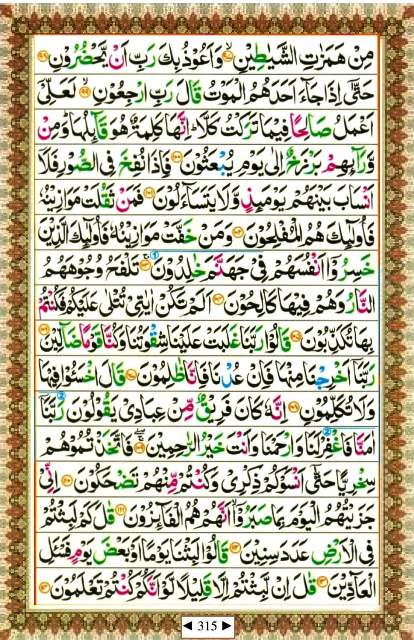 مِنْ هَمَزٰتِ الشَّيٰطِيْنِ ۙ‏﴿۹۷﴾ وَاَعُوْذُ بِكَ رَبِّ اَنْ يَّحْضُرُوْنِ ﴿۹۸﴾
حَتّٰٓى اِذَا جَآءَ اَحَدَهُمُ الْمَوْتُ قَالَ رَبِّ ارْجِعُوْنِ ۙ‏﴿۹۹﴾ لَعَلِّىْٓ
اَعْمَلُ صَالِحًا فِيْمَا تَرَكْتُ كَلَّا ؕ اِنَّهَا كَلِمَةٌ هُوَ قَآئِلُهَا ؕ وَمِنْ
وَّرَآئِهِمْ بَرْزَخٌ اِلٰى يَوْمِ يُبْعَثُوْنَ ﴿۱۰۰﴾ فَاِذَا نُفِخَ فِى الصُّوْرِ فَلَاۤ
اَنْسَابَ بَيْنَهُمْ يَوْمَئِذٍ وَّلَا يَتَسَآءَلُوْنَ ﴿۱۰۱﴾ فَمَنْ ثَقُلَتْ مَوَازِيْنُهٗ
فَاُولٰٓئِكَ هُمُ الْمُفْلِحُوْنَ ﴿۱۰۲﴾ وَمَنْ خَفَّتْ مَوَازِيْنُهٗ فَاُولٰٓئِكَ الَّذِيْنَ
خَسِرُوْۤا اَنْفُسَهُمْ فِىْ جَهَنَّمَ خٰلِدُوْنَ ﴿۱۰۳﴾ تَلْفَحُ وُجُوْهَهُمُ
النَّارُ وَهُمْ فِيْهَا كَالِحُوْنَ ﴿۱۰۴﴾ اَلَمْ تَكُنْ اٰيٰتِىْ تُتْلٰى عَلَيْكُمْ فَكُنْتُمْ
بِهَا تُكَذِّبُوْنَ ﴿۱۰۵﴾ قَالُوْا رَبَّنَا غَلَبَتْ عَلَيْنَا شِقْوَتُنَا وَكُنَّا قَوْمًا ضَآلِّيْنَ ﴿۱۰۶﴾
رَبَّنَاۤ اَخْرِجْنَا مِنْهَا فَاِنْ عُدْنَا فَاِنَّا ظٰلِمُوْنَ ﴿۱۰۷﴾ قَالَ اخْسَئُوْا فِيْهَا
وَلَا تُكَلِّمُوْنِ ﴿۱۰۸﴾ اِنَّهٗ كَانَ فَرِيْقٌ مِّنْ عِبَادِىْ يَقُوْلُوْنَ رَبَّنَاۤ
اٰمَنَّا فَاغْفِرْ لَنَا وَارْحَمْنَا وَاَنْتَ خَيْرُ الرّٰحِمِيْنَ ﴿۱۰۹﴾ فَاتَّخَذْتُمُوْهُمْ
سِخْرِيًّا حَتّٰٓى اَنْسَوْكُمْ ذِكْرِىْ وَكُنْتُمْ مِّنْهُمْ تَضْحَكُوْنَ ﴿۱۱۰﴾ اِنِّىْ
جَزَيْتُهُمُ الْيَوْمَ بِمَا صَبَرُوْۤا اَنَّهُمْ هُمُ الْفَآئِزُوْنَ ﴿۱۱۱﴾ قٰلَ كَمْ لَبِثْتُمْ
فِى الْاَرْضِ عَدَدَ سِنِيْنَ ﴿۱۱۲﴾ قَالُوْا لَبِثْنَا يَوْمًا اَوْ بَعْضَ يَوْمٍ فَسْـَٔلِ
الْعَآدِّيْنَ ﴿۱۱۳﴾ قٰلَ اِنْ لَّبِثْتُمْ اِلَّا قَلِيْلًا لَّوْ اَنَّكُمْ كُنْتُمْ تَعْلَمُوْنَ ﴿۱۱۴﴾
◄ 315 ►